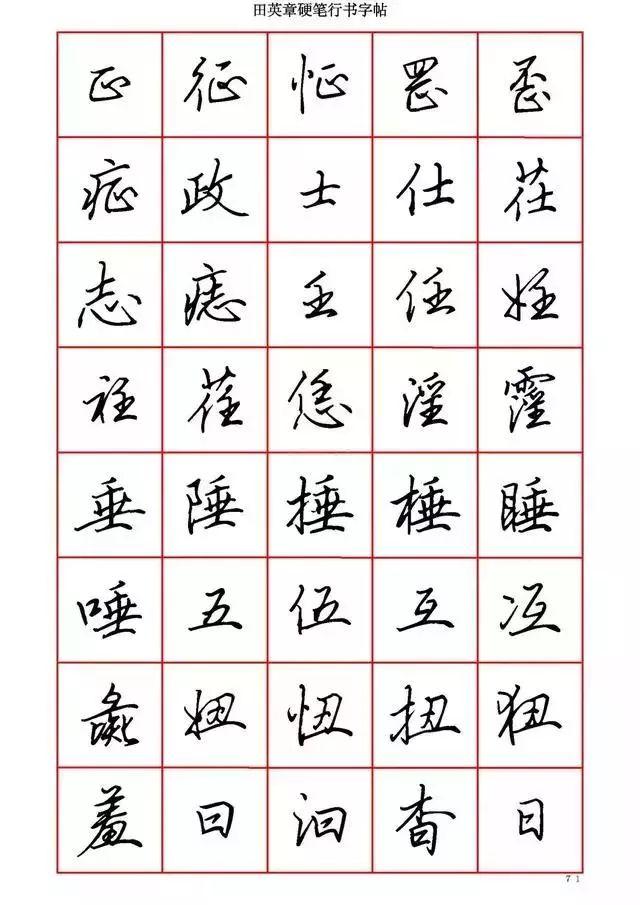 田英章硬笔行书字帖
正 征 怔 罡 歪
症 政 士 仕 茌
志 痣 壬 任 妊
衽 荏 恁 淫 霪
垂 陲 捶 棰 睡
唾 五 伍 互 冱
蠡 妞 忸 扭 狃
羞 曰 汩 杳 日
71